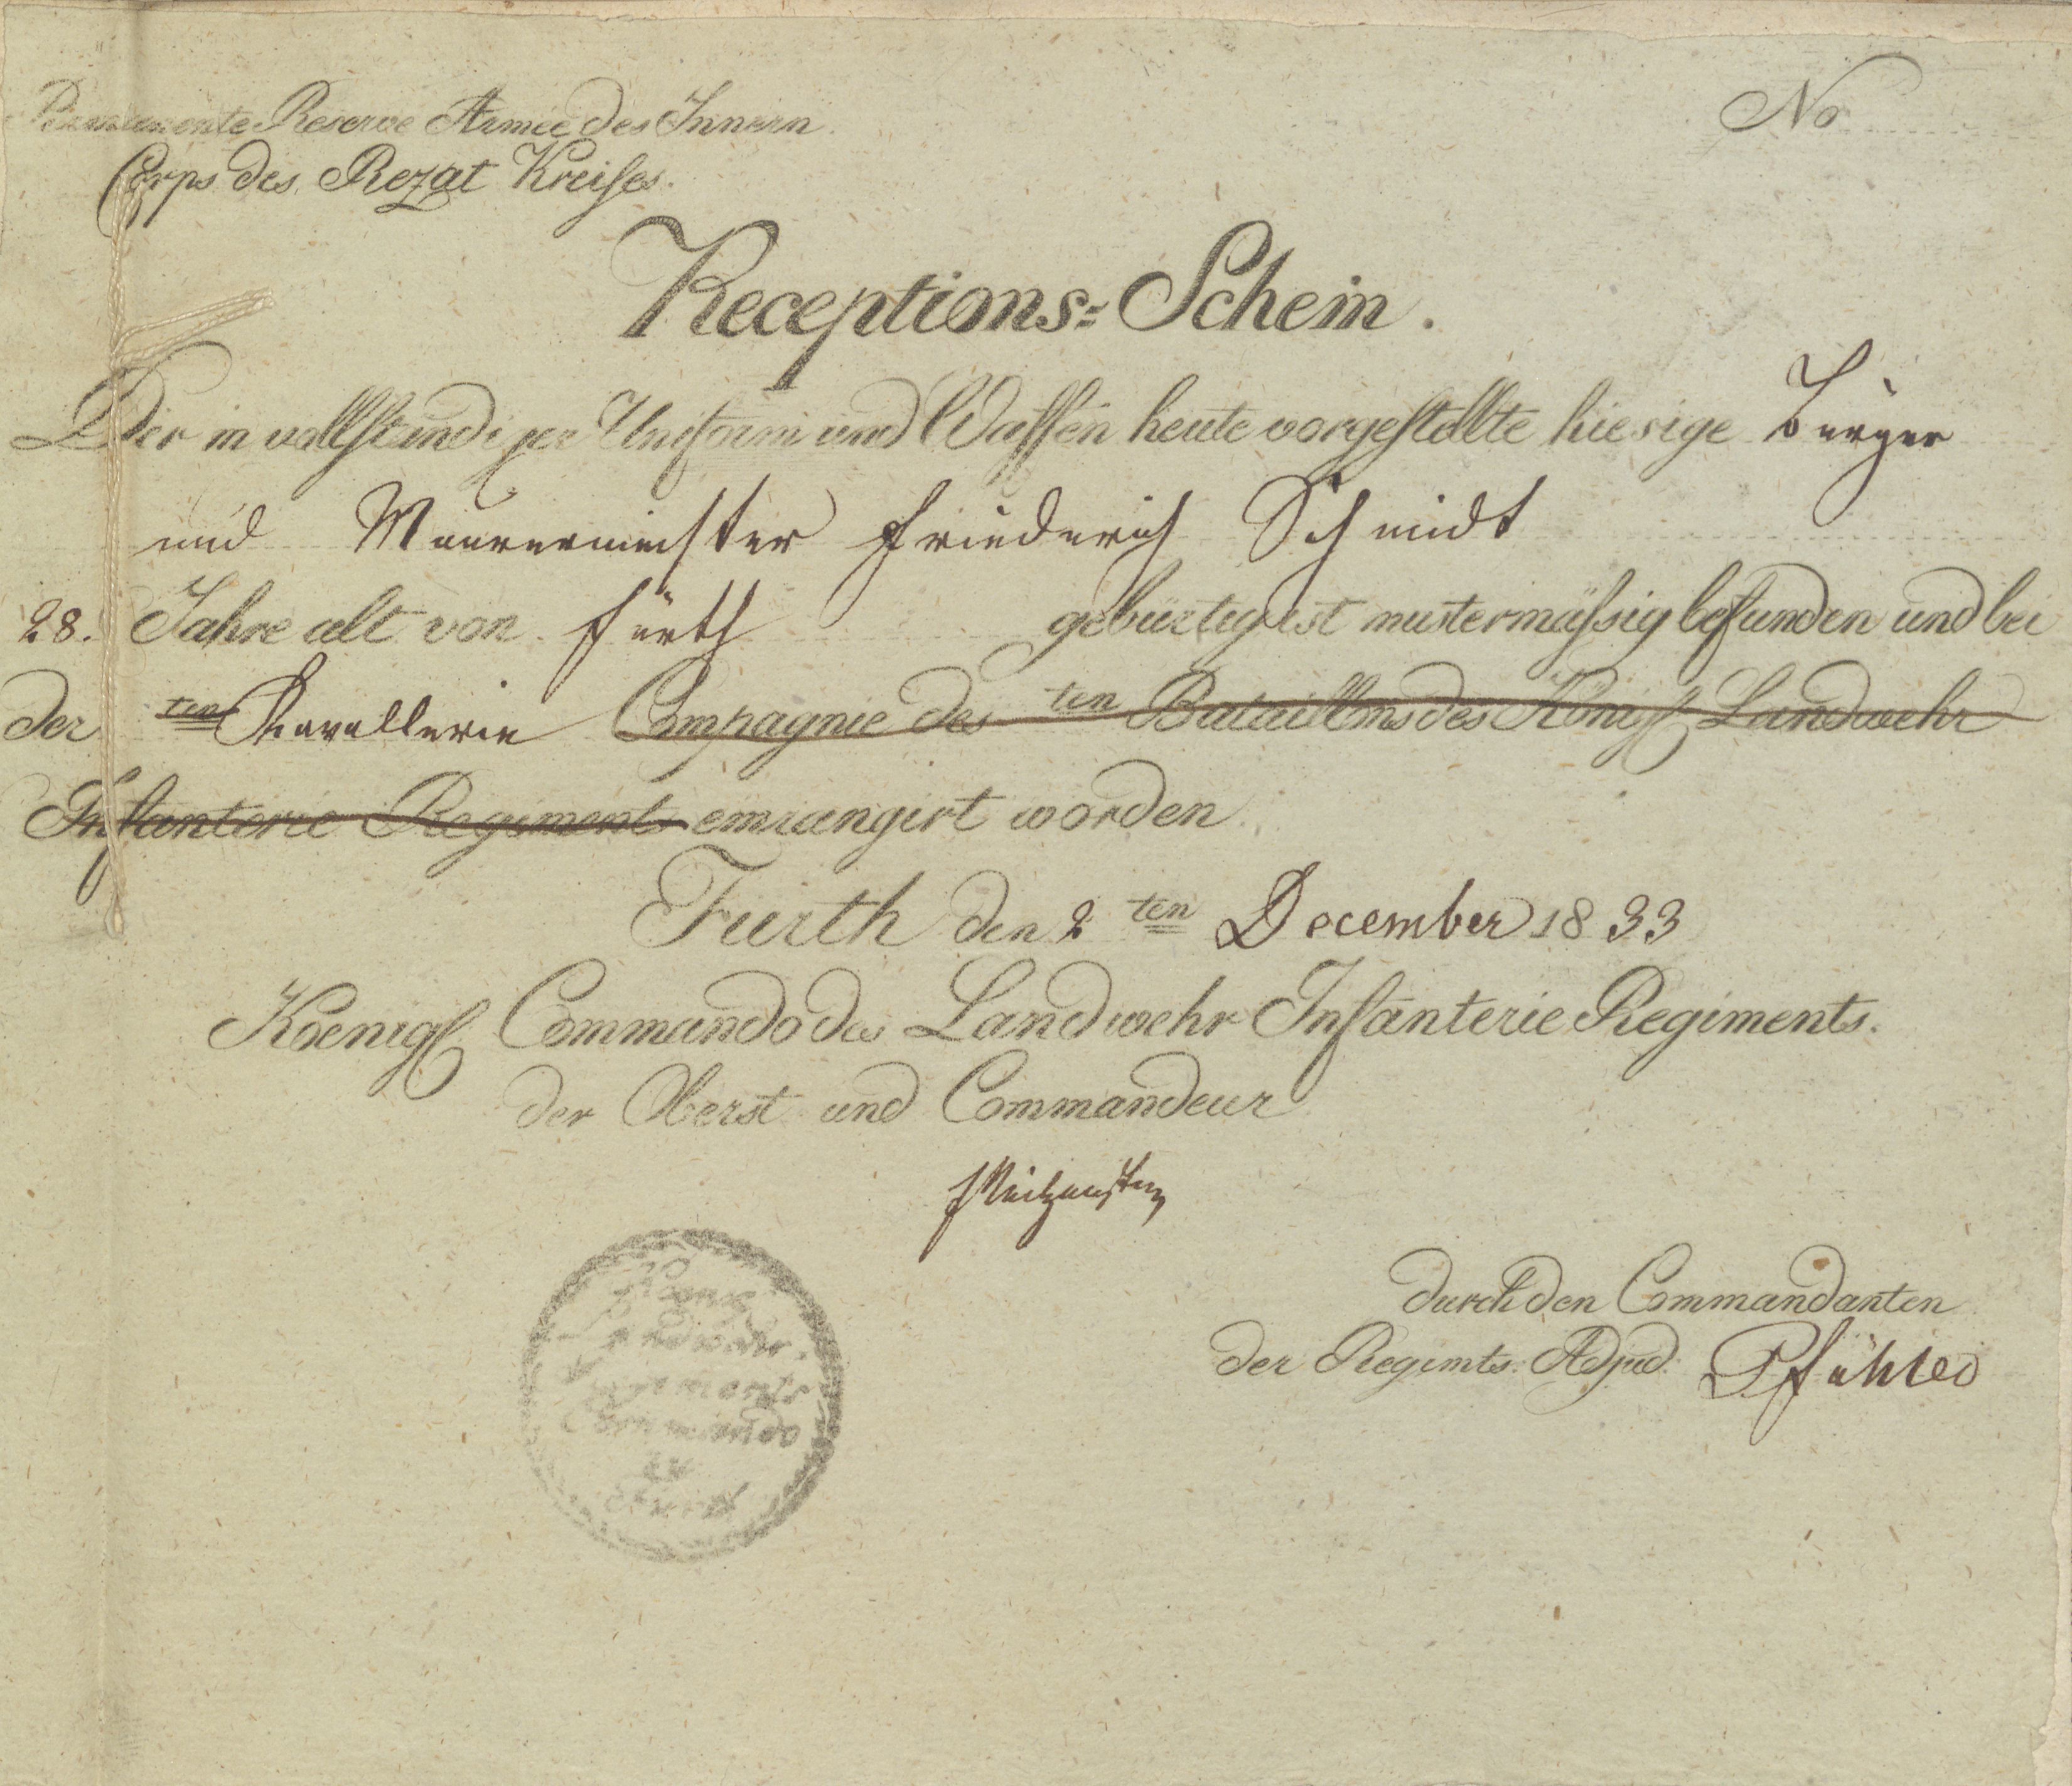 Permanente Reserve Armee des Innern.
No
Corps des Rezat Kreises.
Receptions=Schein.
Der in vollständiger Uniform und Waffen heute vorgestellte hiesige Bürger
und Maurermeister Friederich Schmidt
28. Jahre alt von Fürth gebürtig ist mustermässig befunden und bei
der ten Kavallerie Compagnie des ten Bataillons des Königl Landwehr
Infanterie Regiments einrangirt worden
Fürth den 2 ten December 1833
Koenigl Commando des Landwehr Infanterie Regiments.
der Oberst und Commandeur
durch den Commandanten
der Regimts. Adjud.
Koenigl
Landwehr
Regiments
Commando
zu
Fürth